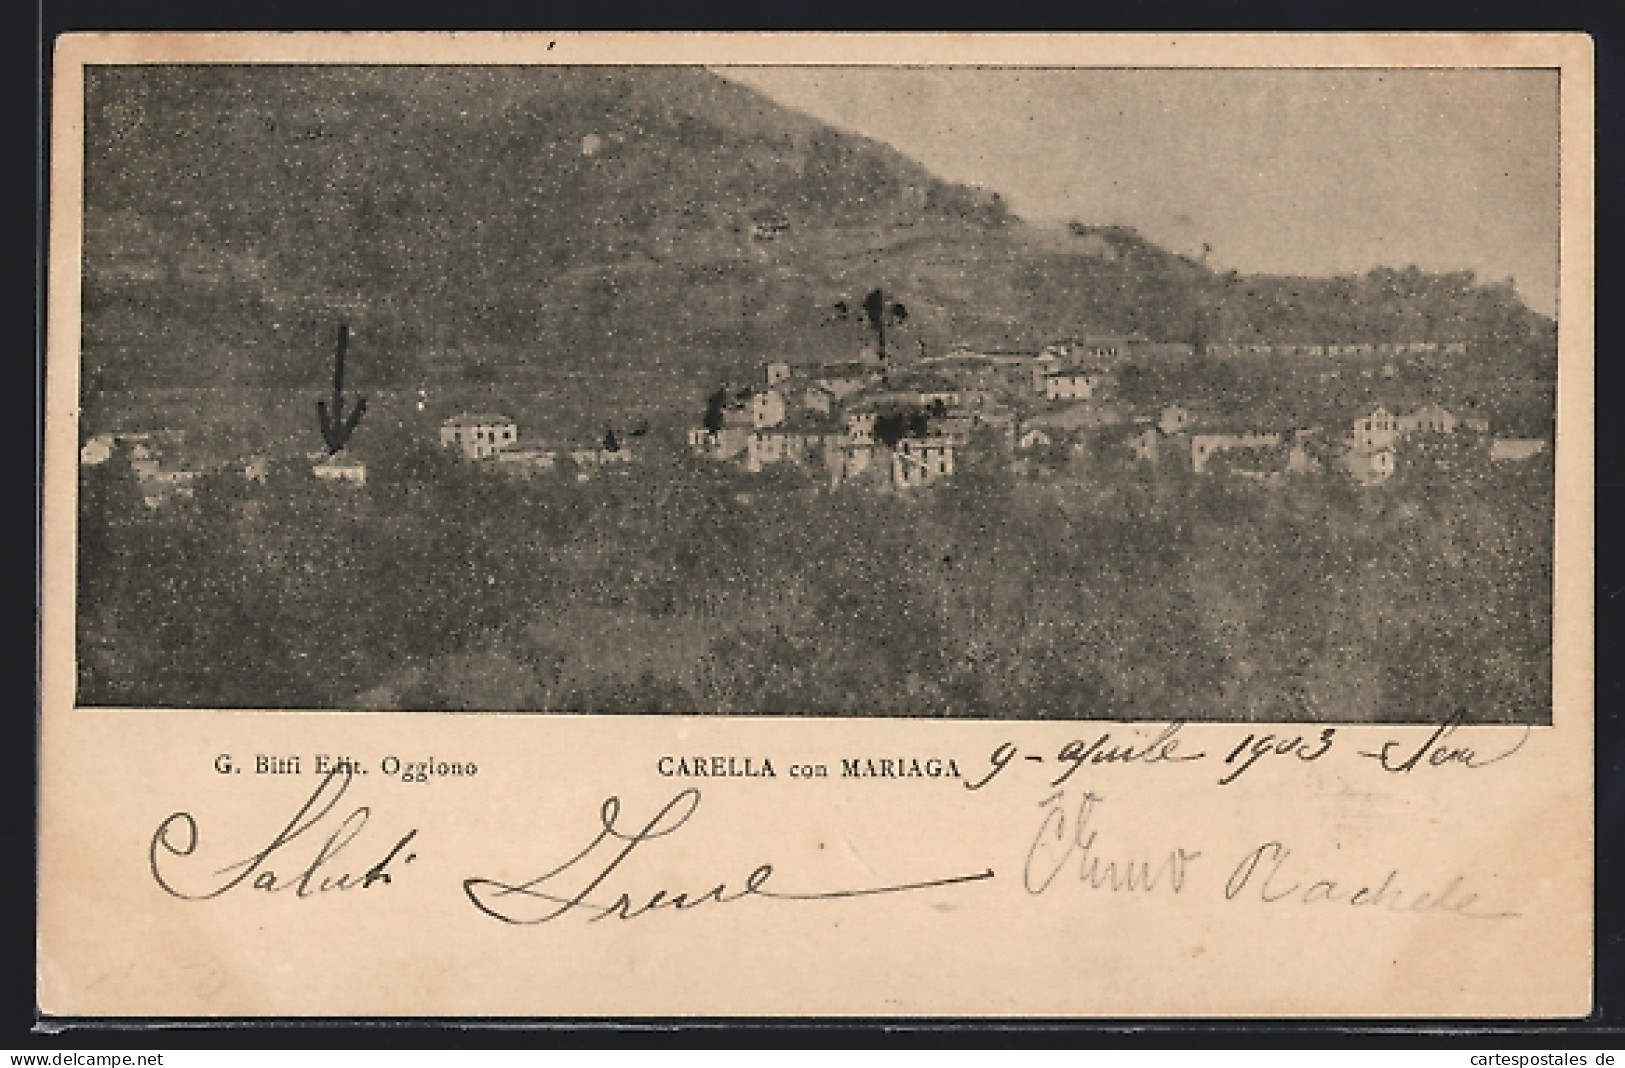 G. Bitfi Edit. Oggiono CARELLA con MARIAGA 9 - aprile 1903 -
Saluti Irene
www.delcampe.net cartespostales de